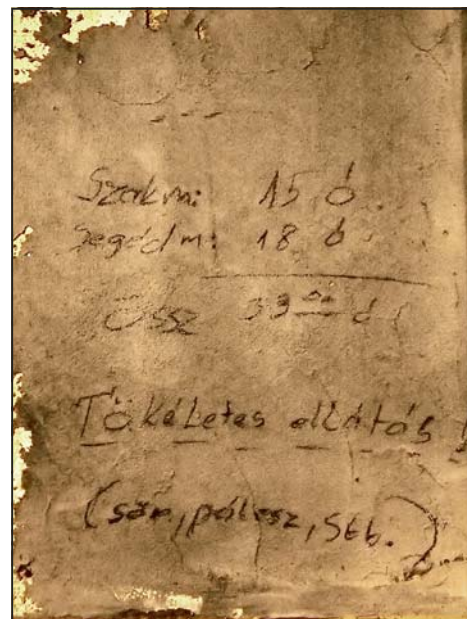 Szakm: 15 ó.
Segédm: 18 ó.
Össz 33 ó
Tökéletes ellátás!
(sör, pálesz, stb.)